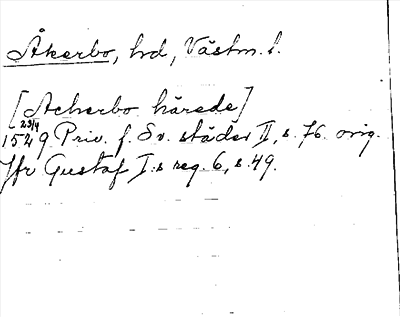 Åkerbo, hd, Västm. l.
[Acherbo härede]
1529 23/4 Priv. f. Sv. städer II, s. 76. orig.
Jfr Gustaf I:s reg. 6, s. 49.